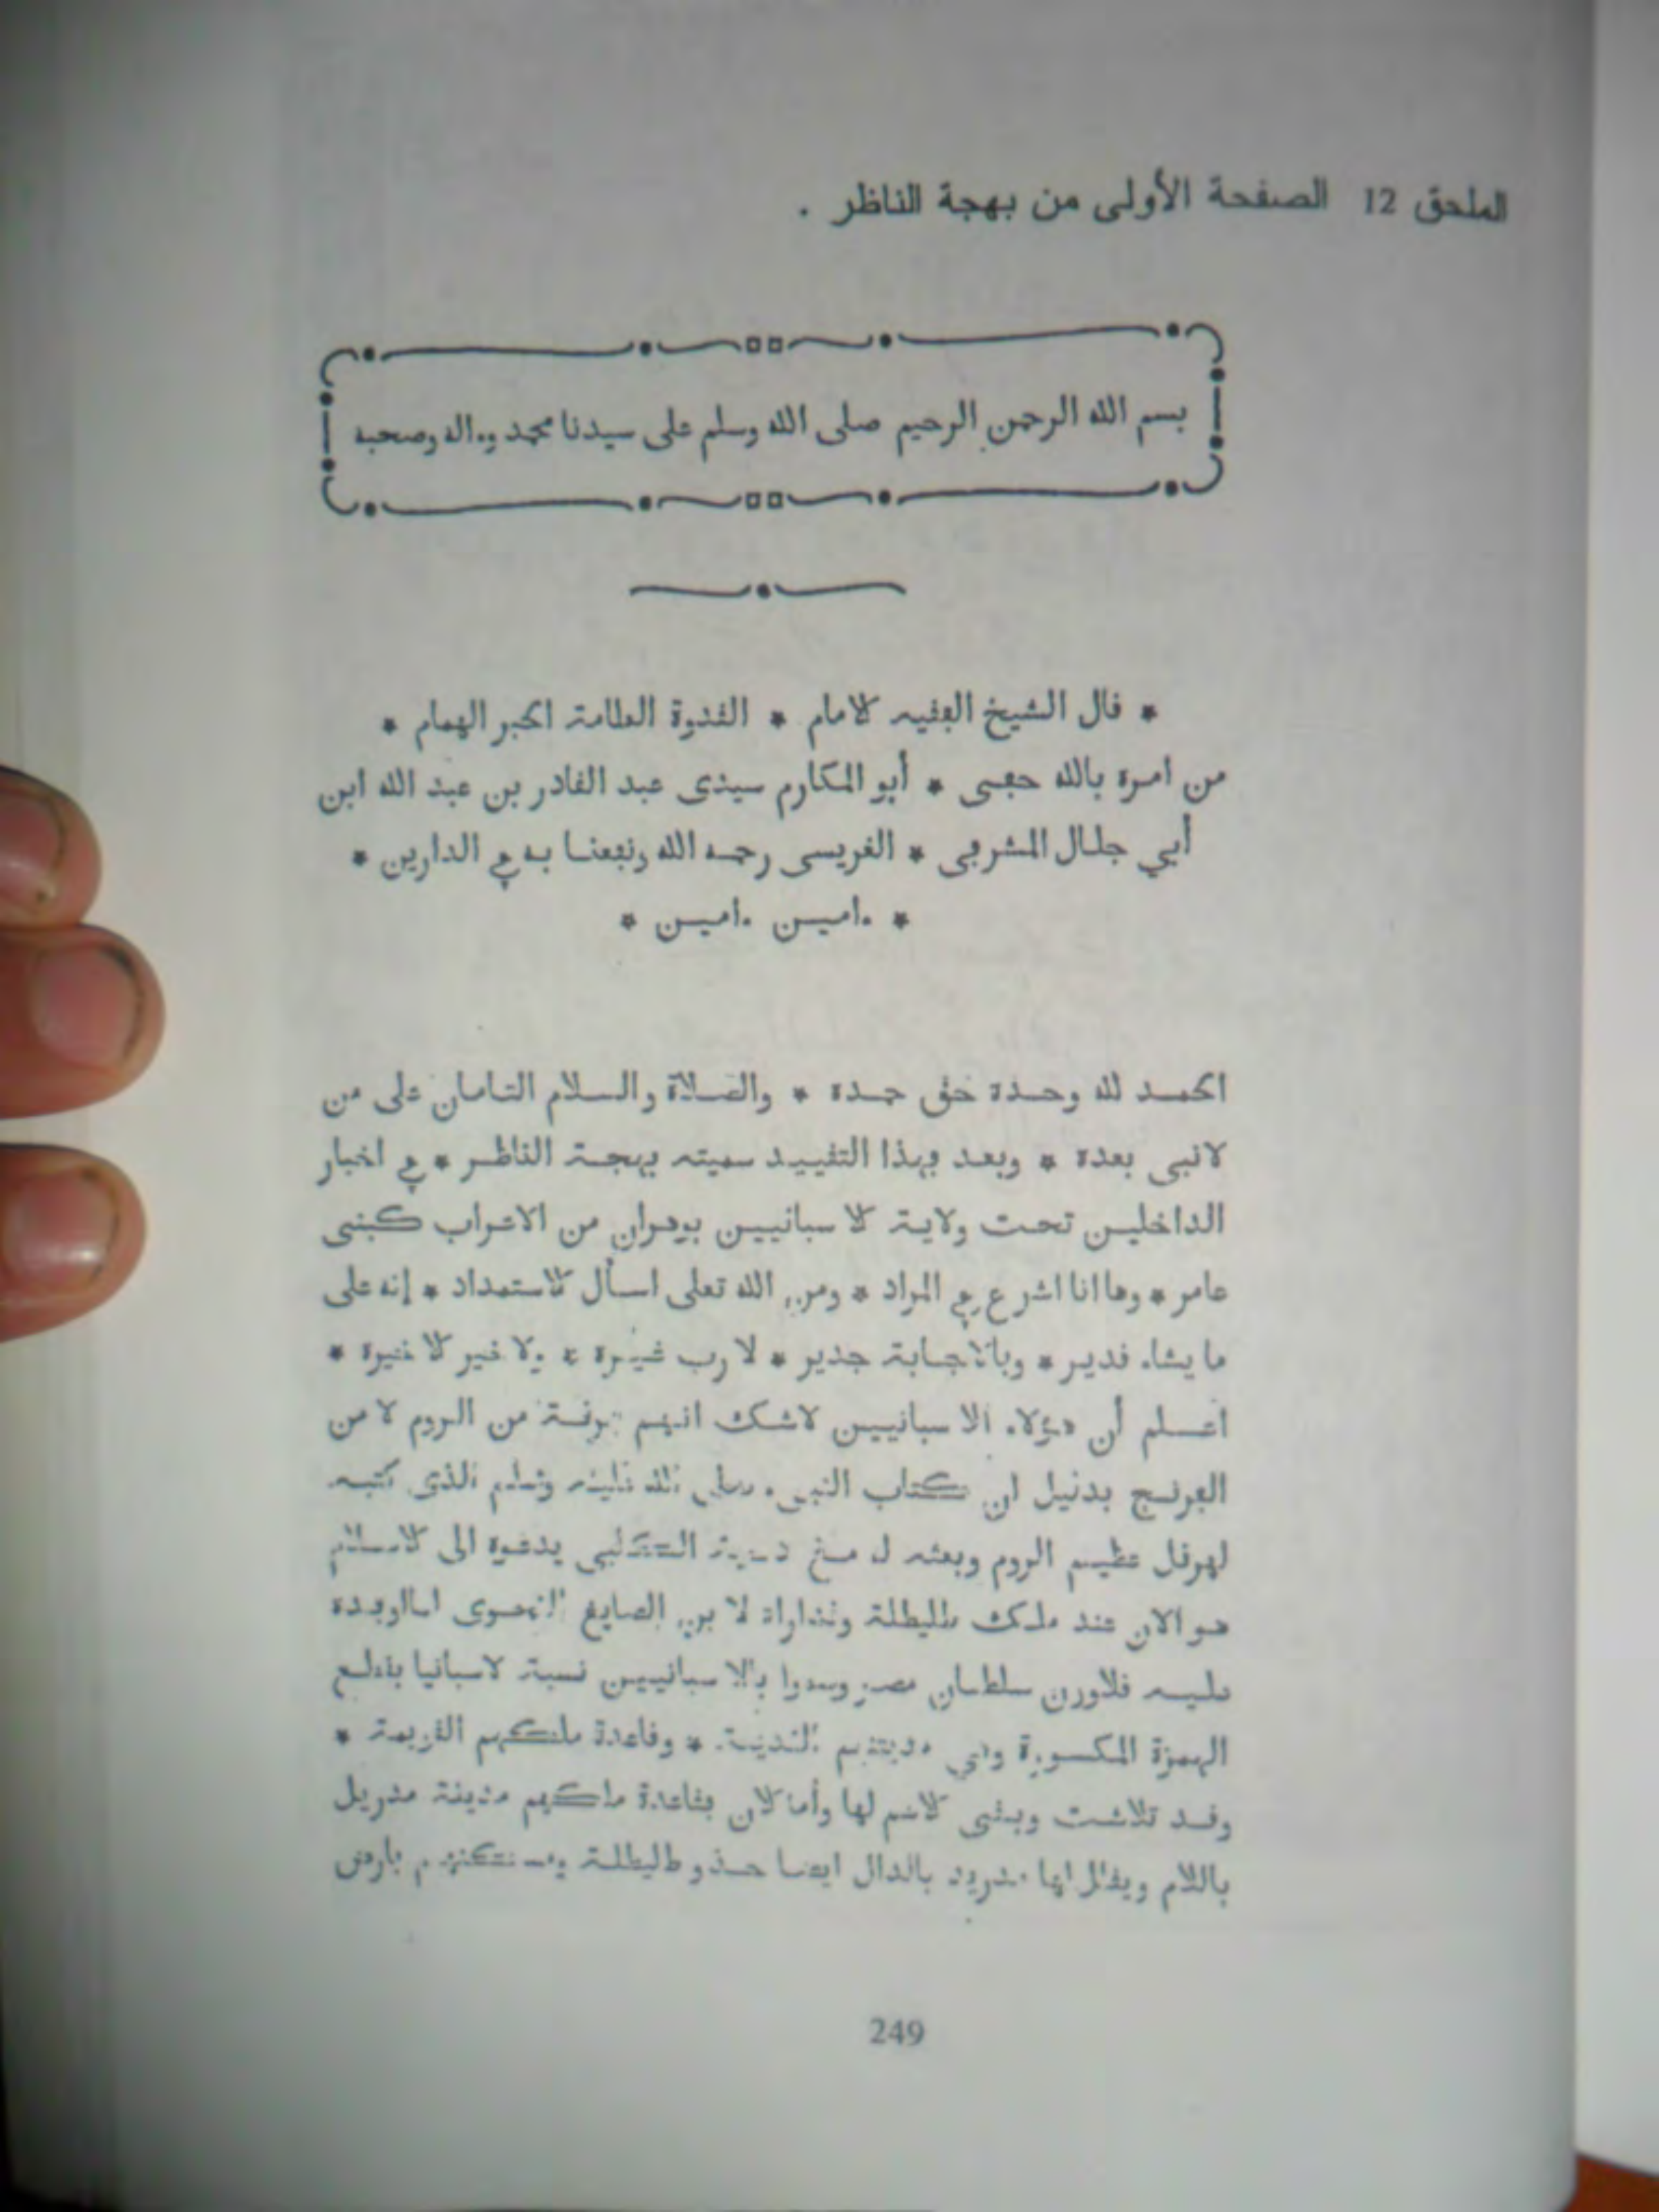 الملحق 12 الصفحة الأولى من بهجة الناظر .
بسم الله الرحمن الرحيم صلى الله وسلم على سيدنا محمد وءاله وصحبه
* فال الشيخ الفقيه الامام * القدوة العلامة الحبر الهمام *
من امره بالله حفى * أبو المكارم سيدى عبد القادر بن عبد الله ابن
أبي جلال المشرفى * الغريسى رحمه الله ونفعنا به في الدارين *
* ءامين ءامين *
الحمد لله وحده حق حمده * والصلاة والسلام التامان على من
لا نبى بعده * وبعد فهذا التقييد سميته بهجة الناظر * في اخبار
الداخلين تحت ولاية الاسبانيين بوهران من الاعراب كبنى
عامر * وها انا اشرع في المراد * ومن الله تعلى اسأل الاستمداد * إنه على
ما يشاء قدير * وبالاجابة جدير * لا رب غيره * ولا خير الا خيره *
اعلم أن هؤلاء الاسبانيين لاشك انهم فرقة من الروم لا من
الفرنج بدليل ان كتاب النبى صلى الله عليه وسلم الذى كتبه
لهرفل عظيم الروم وبعثه مع دحية الكلبي يدعوه الى الاسلام
هو الان عند ملك طليطلة الصايغ
فلاورن سلطان مصر وسموا بالاسبانيين نسبة لاسبانيا
الهمزة المكسورة وهي مدينتهم القديمة * وقاعدة ملكهم القديمة *
وقد تلاشت وبقى الاسم لها وأما الان فقاعدة ملكهم مدينة مدريل
باللام ويقال لها مدريد بالدال ايضا حذو طليطلة بارض
249